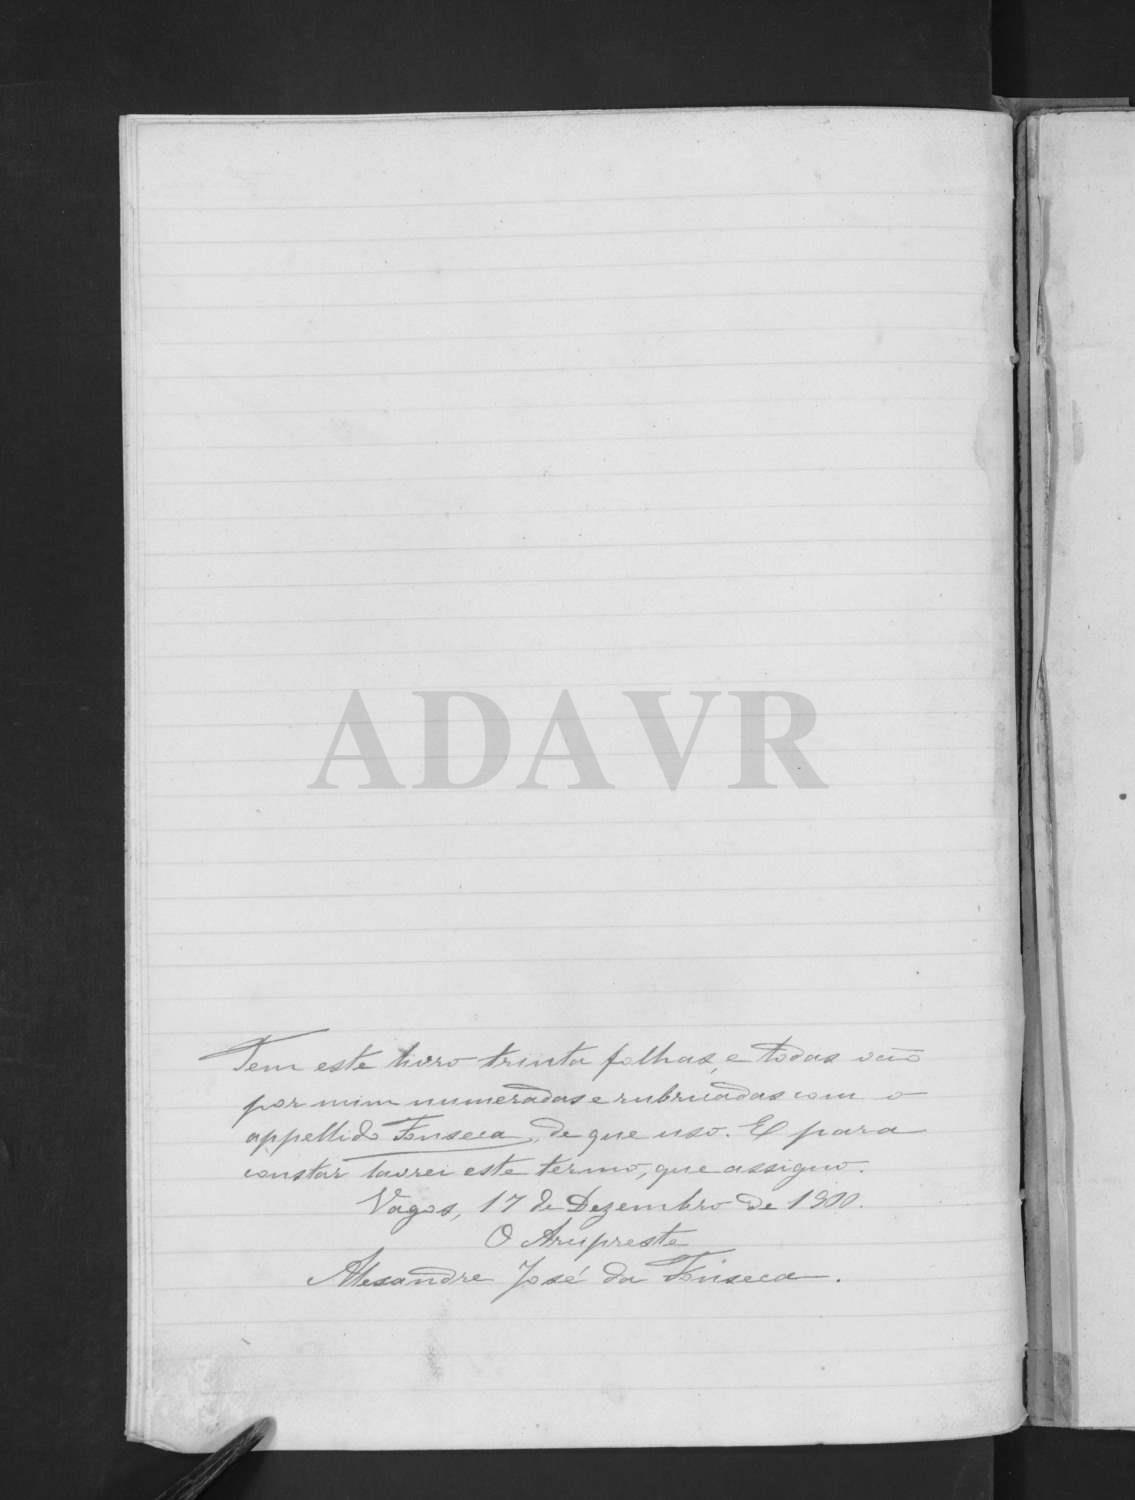 ADAVR
Tem este livro trinta folhas, e todas vão
por mim numeradas e rubricadas com o
appellido Fonseca, de que uso. E para
constar lavrei este termo, que assigno.
Vagos, 17 de Dezembro de 1900.
O Arcipreste
Alexandre José da Fonseca.